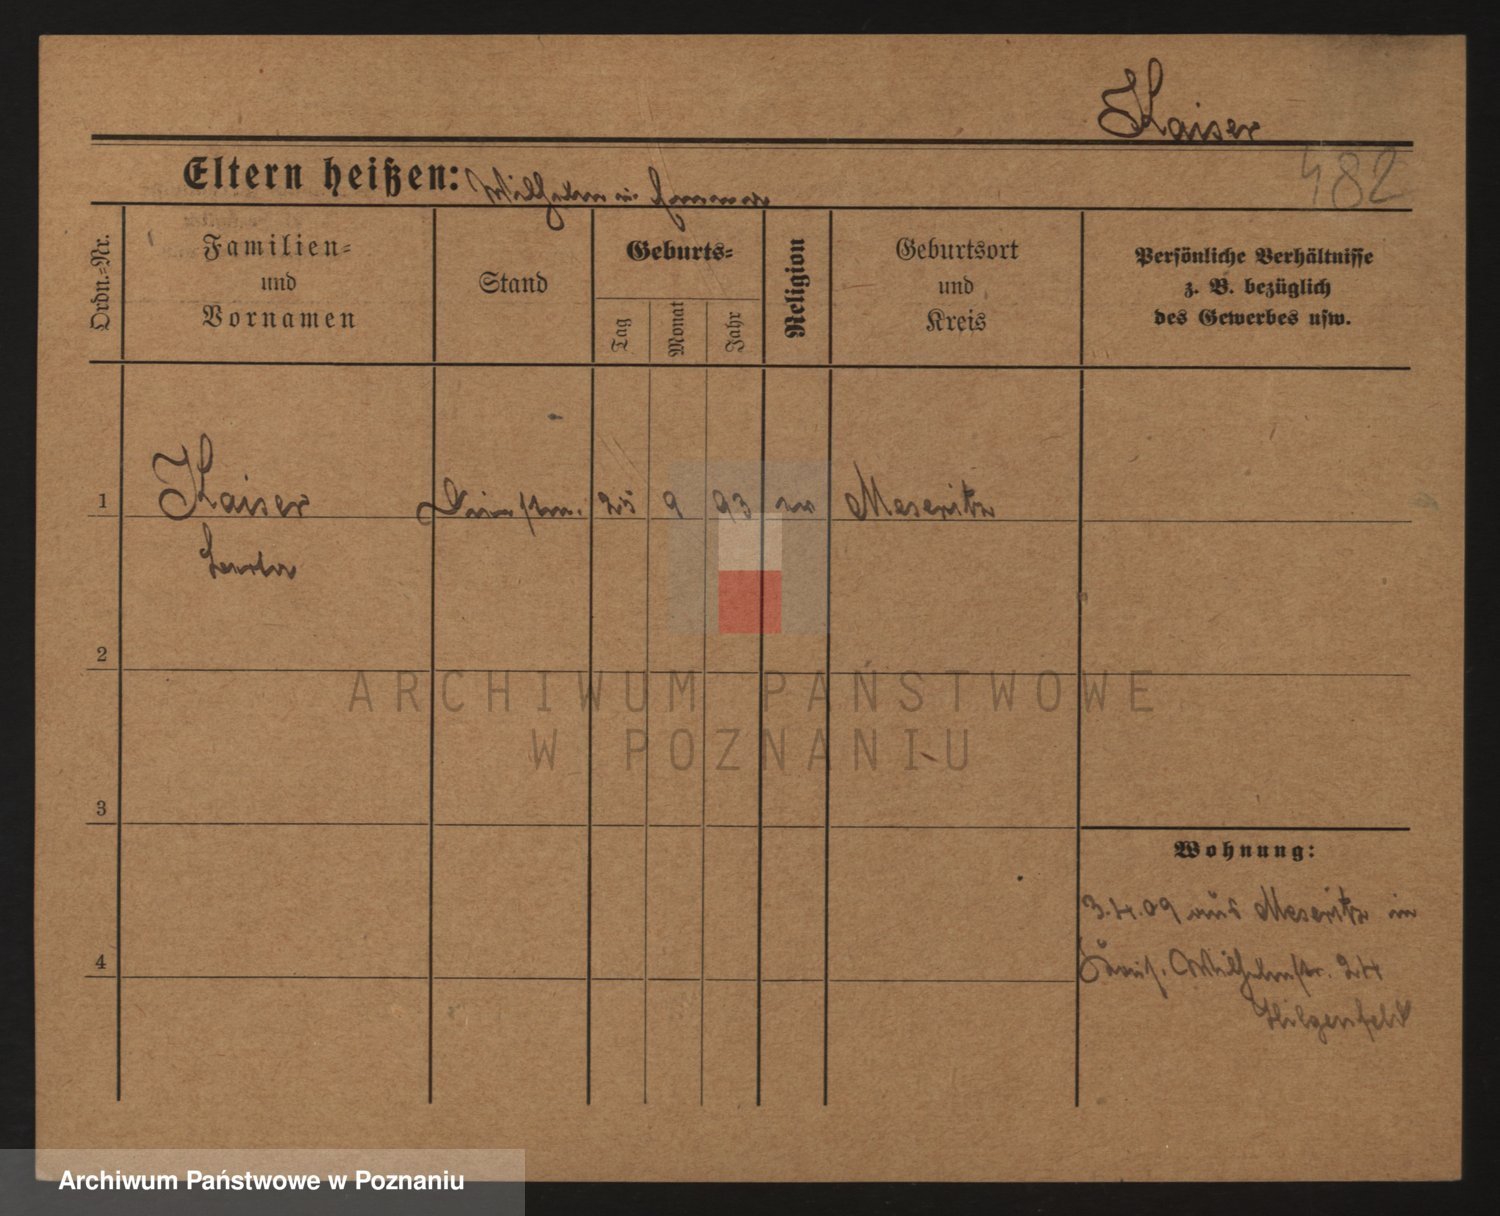 Kaiser
482
Eltern heißen: Wilhelm u.
Ordn.-Nr.
Familien-
und
Vornamen
Stand
Geburts-
Tag
Monat
Jahr
Religion
Geburtsort
und
Kreis
Persönliche Verhältnisse
z. B. bezüglich
des Gewerbes usw.
1 Kaiser Dienstm. 25 9 93 ev Meseritz
2
3
4
Wohnung:
3.4.09 aus Meseritz in
Wilhelmstr. 24
Hilgenfeld
ARCHIWUM PAŃSTWOWE
W POZNANIU
Archiwum Państwowe w Poznaniu